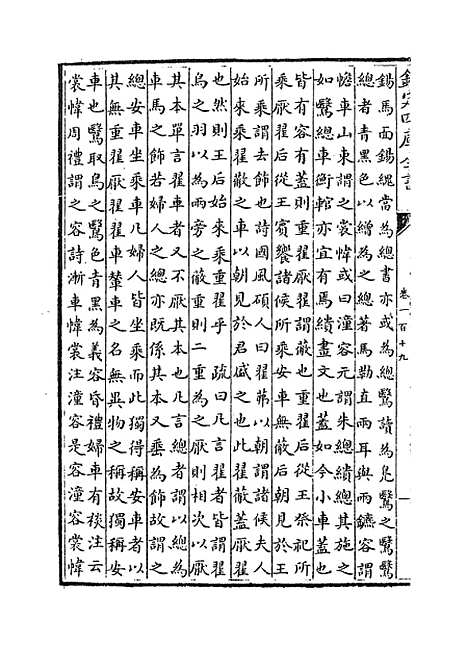 欽定四庫全書
卷一百十九
鍚馬面鍚緫當為總書亦或為總鷖讀為鳧鷖之鷖鷖
總者青黑色以繒為之總著馬勒直兩耳與兩鑣容謂
幨車山東謂之裳幃或曰潼容元謂朱總繢總其施之
如鷖總車衡輨亦宜有焉繢畫文也蓋如今小車蓋也
皆有容有蓋則重翟厭翟謂蔽也重翟后從王祭祀所
乘厭翟后從王賓饗諸侯所乘安車無蔽后朝見於王
所乘謂去飾也詩國風碩人曰翟茀以朝謂諸侯夫人
始來乘翟蔽之車以朝見於君盛之也此翟蔽蓋厭翟
也然則王后始來乘重翟乎 疏曰凡言翟者皆謂翟
鳥之羽以為兩旁之蔽重則二重為之厭則相次以厭
其本單言翟車者又不厭其本也凡言總者謂以總為
車馬之飾若婦人之總亦既係其本又垂為飾故謂之
總安車坐乘車凡婦人皆坐乘而此獨得稱安車者以
其無重翟厭翟車輦車之名無異物之稱故獨稱安
車也鷖取鳥之鷖色青黑為義容昏禮婦車有裧注云
裳幃周禮謂之容詩漸車幃裳注潼容是容潼容裳幃